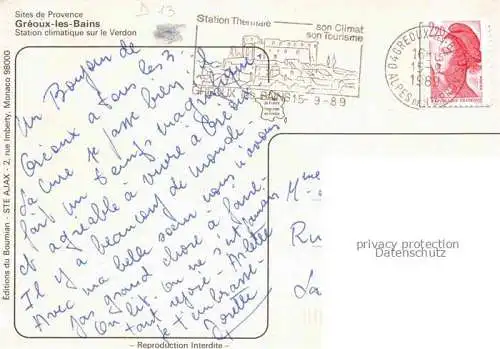 D 13
Sites de Provence
Gréoux-les-Bains
Station climatique sur le Verdon
Station Thermale
son Climat
son Tourisme
GREOUX LES BAINS 15-9-89
04 GREOUX
15-9
ALPES
Un Bonjour de
Gréoux à tous les 3.
La cure se passe bien. Il
fait un temps magnifique
et agréable à vivre à Gréoux
Il y a beaucoup de monde.
Avec ma belle sœur nous n'avons
pas grand chose à faire.
On lit. On ne s'est jamais
tant reposé - Arlette
je t'embrasse
Mme
Ru
La
privacy protection
Datenschutz
Editions du Boumian - STE AJAX - 2, rue Imberty, Monaco 98000
– Reproduction Interdite –